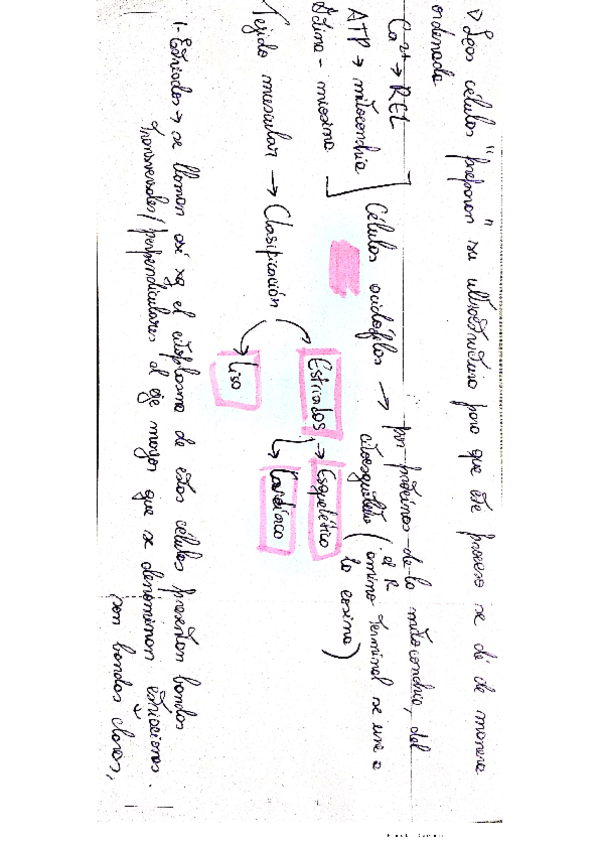 ▷ Las células "preparan" su ultraestructura para que este proceso se dé de manera
ordenada
Ca²⁺ → REL
ATP → mitocondria
Actina - miosina
Células acidófilas → por proteínas de la mitocondria, del
citoesqueleto ( el R
amino terminal se une a
la eosina )
Tejido muscular → Clasificación
Estriados → Esquelético
Cardíaco
Liso
1- Estriados → se llaman así xq el citoplasma de estas células presentan bandas
transversales/perpendiculares al eje mayor que se denominan estriaciones.
son bandas claras,